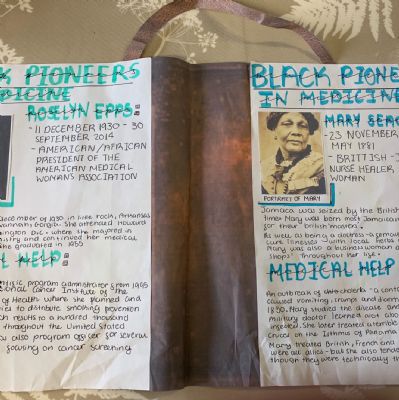 K PIONEERS
DICINE
ROSELYN EPPS:
- 11 DECEMBER 1930 - 30
SEPTEMBER 2014
- AMERICAN/AFRICAN
PRESIDENT OF THE
AMERICAN MEDICAL
WOMANS ASSOCIATION
december of 1930 in little rock, Arkansas
Savannah, Gorgia. She attended Howard
ington D.C. where she majored in
istry and continued her medical
she graduated in 1955
L HELP:
ntific program administrator from 1995
tional Cancer Institute of the
of Health where she planned and
ies to distribute smoking prevention
ch results to a hundred thousand
throughout the United Stated
also program officer for several
focusing on cancer screening
BLACK PIONE
IN MEDICINE
MARY SEAC
- 23 NOVEMBER
MAY 1881
- BRITTISH - J
NURSE HEALER
WOMAN
PORTRAIT OF MARY
Jamaica was seized by the British
times Mary was born most Jamaican
for their british 
As well as being a doctress -a 
cure illnesses - with local herbs
Mary was also a business woman
shops Throughout her life:
MEDICAL HELP
An outbreak of cholera - a 
caused vomiting, cramps and 
1850. Mary studied the disease and
military doctor learned a lot about
infected. She later treated a terrible
Cruces on the Isthmus of Panama
Mary treated British, French and
were all allies - but she also tende
though they were technically th